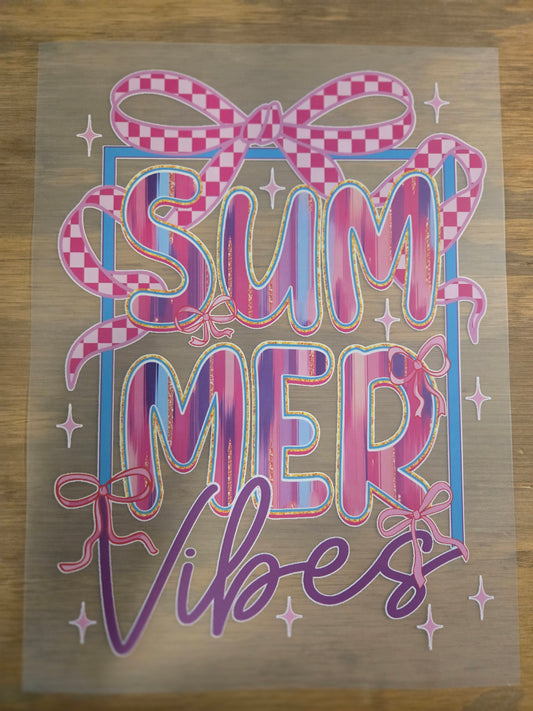 SUM
MER
Vibes